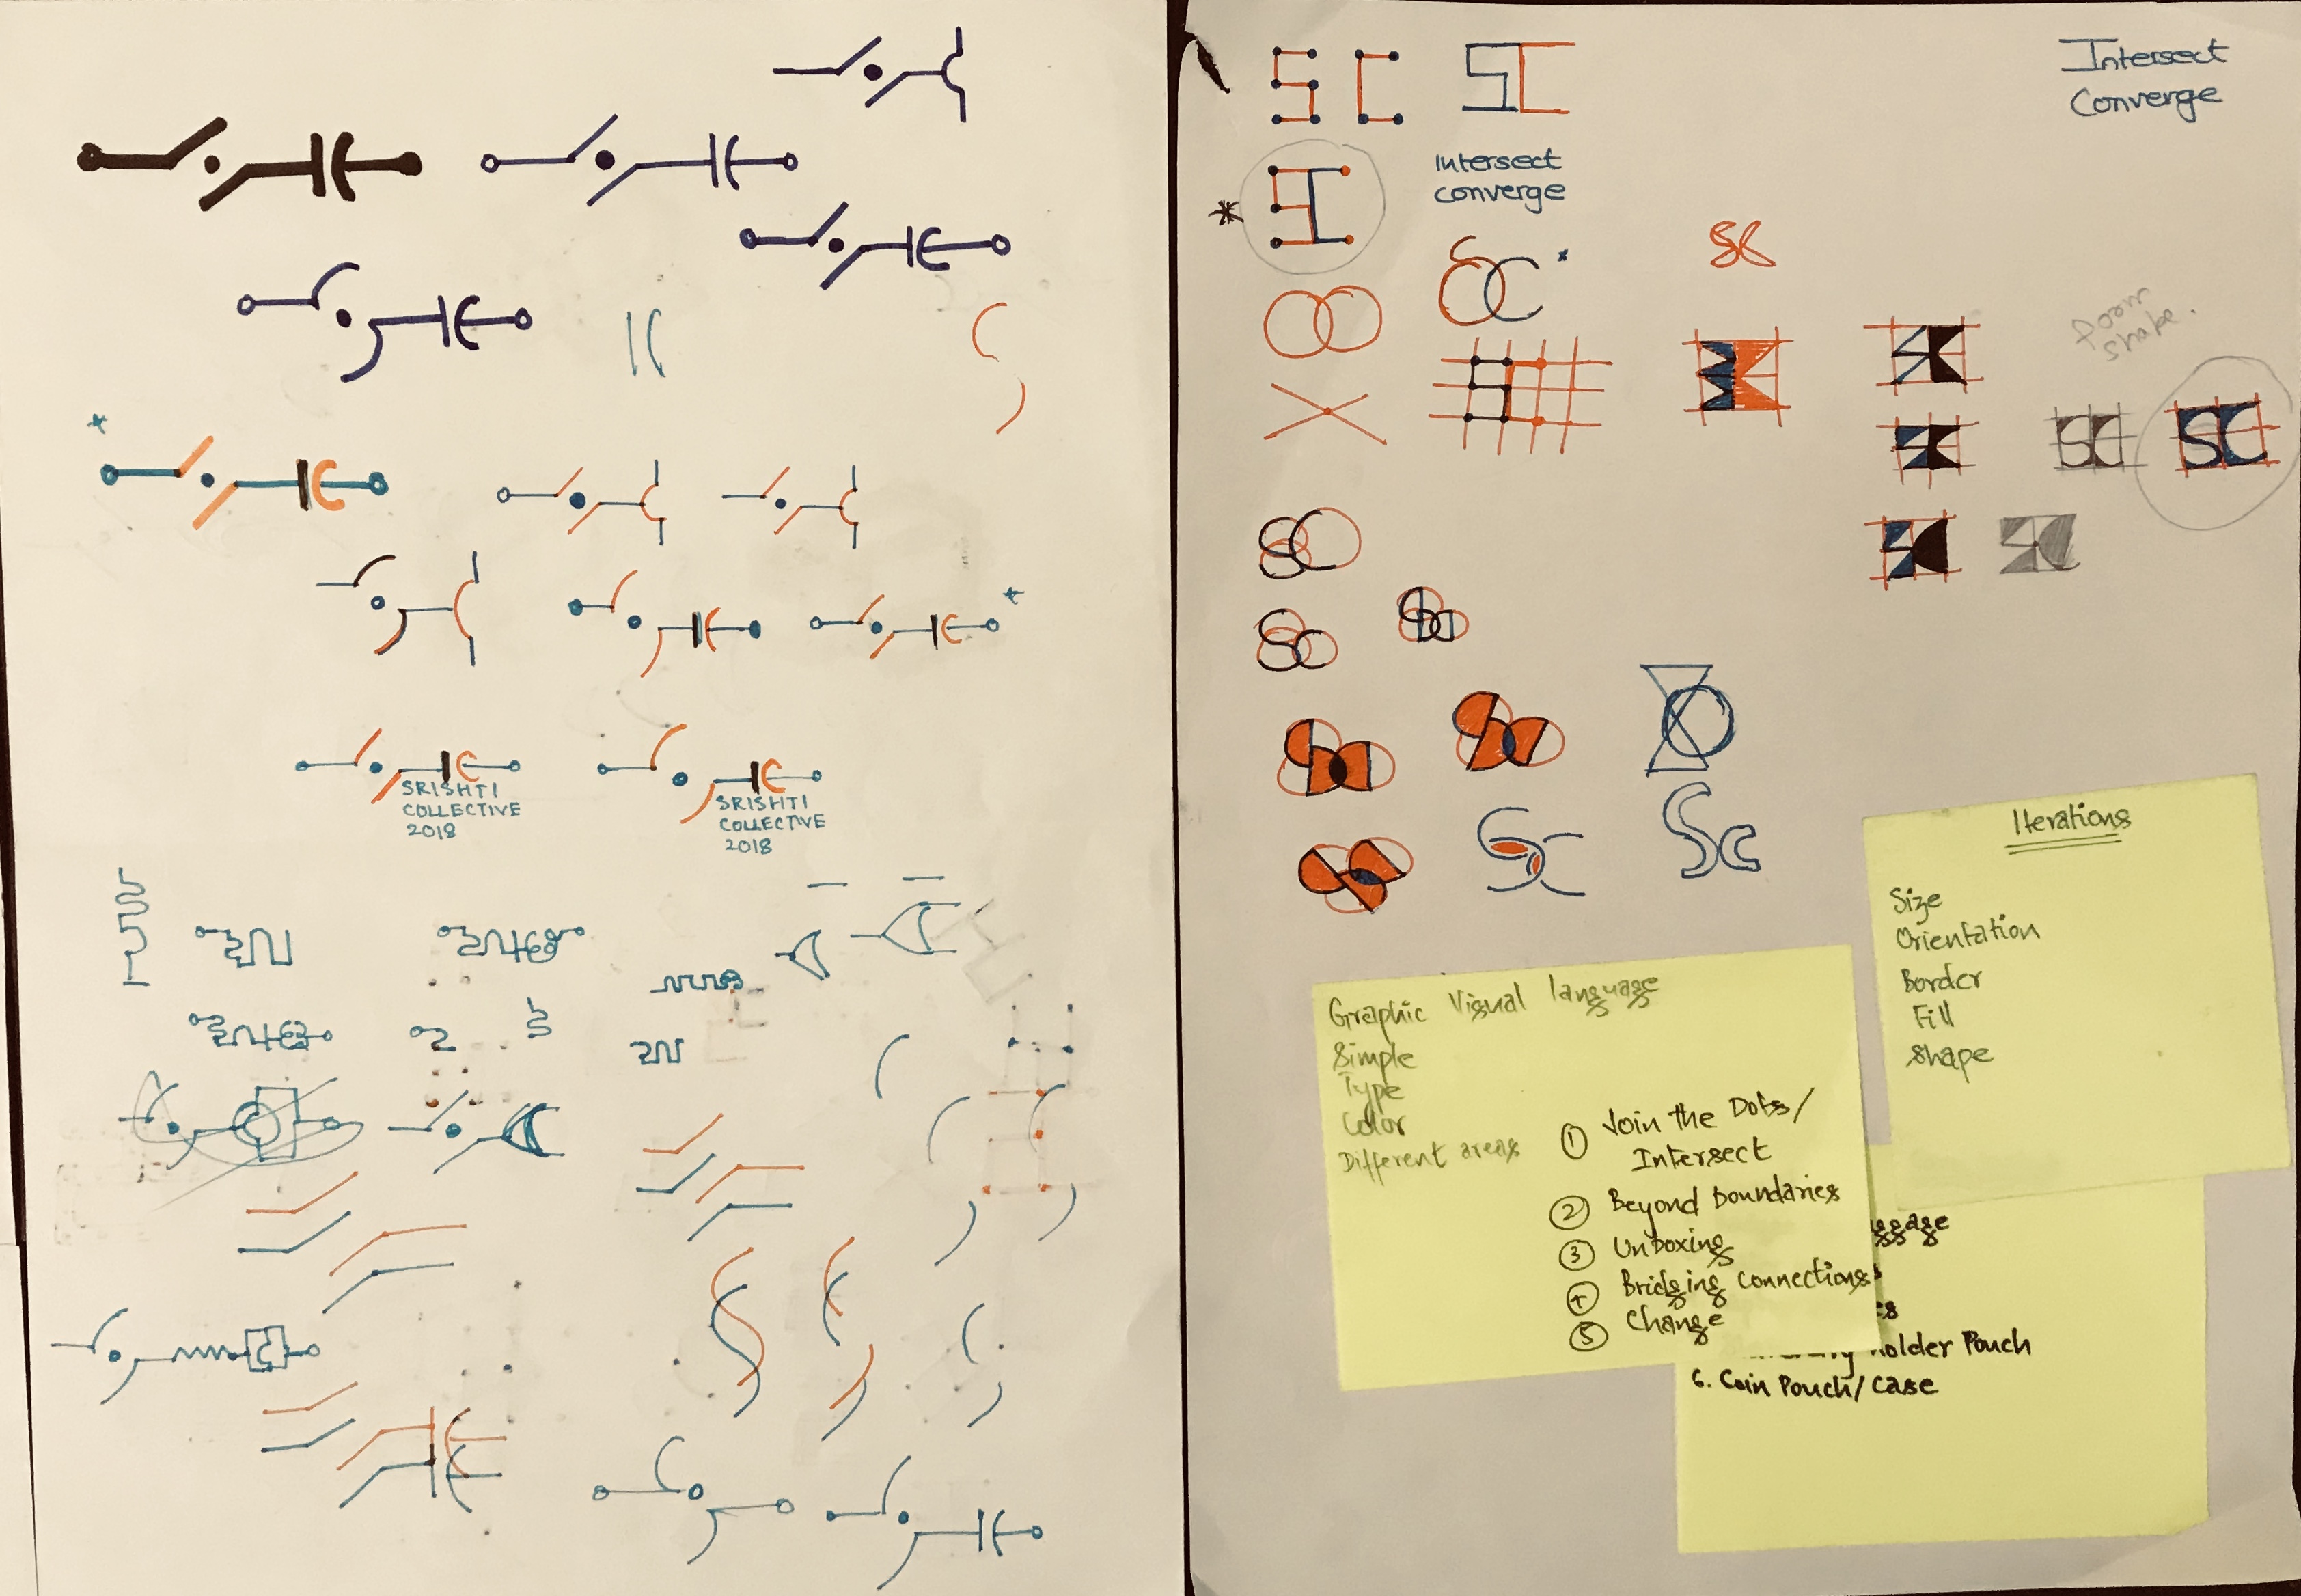 SRISHTI
COLLECTIVE
2018
SRISHTI
COLLECTIVE
2018
S C SC
Intersect
Converge
Intersect
converge
SC
form
shape.
SC
SC
Sc
Iterations
Size
Orientation
Border
Fill
Shape
Graphic Visual language
Simple
Type
Color
Different areas
① Join the Dots/
Intersect
② Beyond boundaries
③ Unboxing
④ Bridging connections
⑤ Change
Holder Pouch
6. Coin Pouch/Case